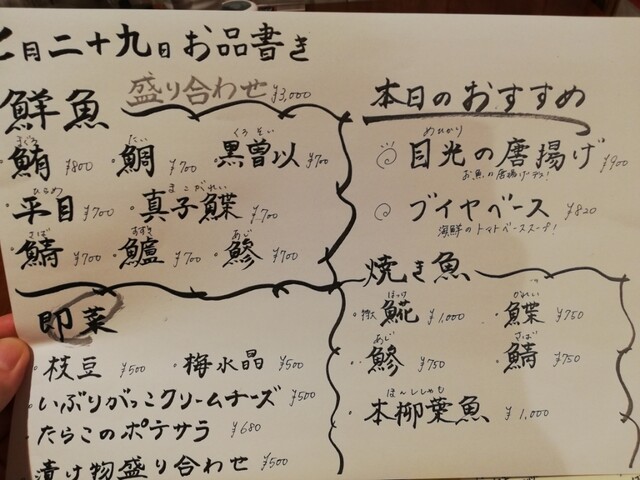 七月二十九日お品書き
鮮魚 盛り合わせ ¥3,000
まぐろ たい くろそい
・鮪 ¥800 ・鯛 ¥700 黒曽以 ¥700
ひらめ まこがれい
・平目 ¥700 ・真子鰈 ¥700
さば すずき あじ
・鯖 ¥700 ・鱸 ¥700 ・鰺 ¥700
即菜
・枝豆 ¥500 ・梅水晶 ¥500
・いぶりがっこクリームチーズ ¥500
・たらこのポテサラ ¥680
漬け物盛り合わせ ¥500
本日のおすすめ
めひかり
目光の唐揚げ ¥900
お魚の唐揚げデス!
ブイヤベース ¥820
海鮮のトマトベーススープ!
焼き魚
ほっけ かれい
・特大 𩸽 ¥1,000 ・鰈 ¥750
あじ さば
・鰺 ¥750 ・鯖 ¥750
ほんししゃも
・本柳葉魚 ¥1,000